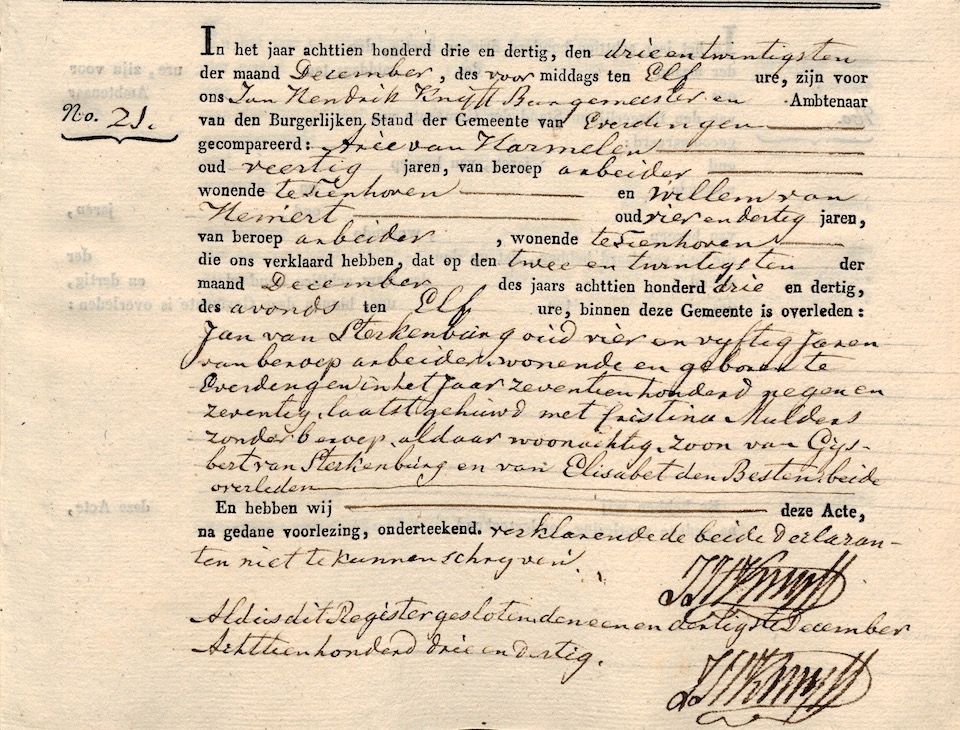 In het jaar achttien honderd drie en dertig, den drie en twintigsten
der maand December, des voor middags ten Elf ure, zijn voor
ons Jan Hendrik Knijff Burgemeester en Ambtenaar
No. 21.
van den Burgerlijken Stand der Gemeente van Everdingen
gecompareerd: Arie van Harmelen
oud veertig jaren, van beroep arbeider
wonende te Tienhoven en Willem van
Hemert oud vier en dertig jaren,
van beroep arbeider, wonende te Tienhoven
die ons verklaard hebben, dat op den twee en twintigsten der
maand December des jaars achttien honderd drie en dertig,
des avonds ten Elf ure, binnen deze Gemeente is overleden:
Jan van Sterkenburg oud vier en vyftig Jaren
van beroep arbeider wonende en geboren te
Everdingen in het Jaar zeventien honderd negen en
zeventig, laatst gehuwd met Cristina Mulders
zonder beroep, aldaar woonachtig, zoon van Gys-
bert van Sterkenburg en van Elisabet den Besten, beide
overleden
En hebben wij deze Acte,
na gedane voorlezing, onderteekend. verklarende de beide Declaran-
ten niet te kunnen schryven.
JHKnijff
Aldus dit Register gesloten den een en dertigste December
Achttien honderd drie en dertig.
JHKnijff